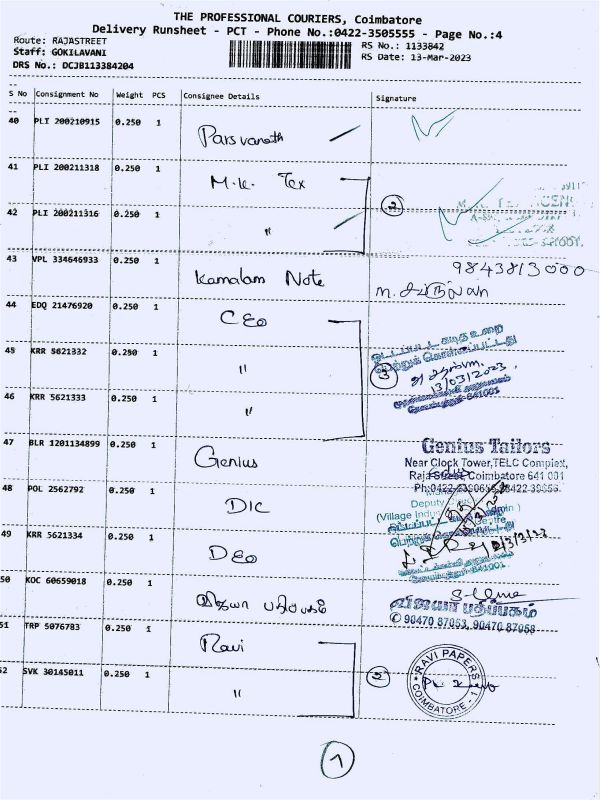 THE PROFESSIONAL COURIERS, Coimbatore
Delivery Runsheet - PCT - Phone No.:0422-3505555 - Page No.:4
Route: RAJASTREET
Staff: GOKILAVANI
DRS No.: DCJB113384204
RS No.: 1133842
RS Date: 13-Mar-2023
S No Consignment No Weight PCS Consignee Details Signature
40 PLI 200210915 0.250 1 Parsvanath
41 PLI 200211318 0.250 1 M.K. Tex
2
42 PLI 200211316 0.250 1 "
43 VPL 334646933 0.250 1 Kamalam Note
9843813000
44 EDQ 21476920 0.250 1 CEO
45 KRR 5621332 0.250 1 "
3
13/03/2023
46 KRR 5621333 0.250 1 "
641001
47 BLR 1201134899 0.250 1 Genius
Genius Tailors
Near Clock Tower,TELC Complex,
Raja Street, Coimbatore 641 001
48 POL 2562792 0.250 1 DIC
Deputy
(Village
49 KRR 5621334 0.250 1 DEO
641001
50 KOC 60659018 0.250 1 விஜயா பதிப்பகம்
விஜயா பதிப்பகம்
✆ 90470 87053, 90470 87058
51 TRP 5076783 0.250 1 Ravi
52 SVK 30145011 0.250 1 "
5
RAVI PAPERS
COIMBATORE - 1
7